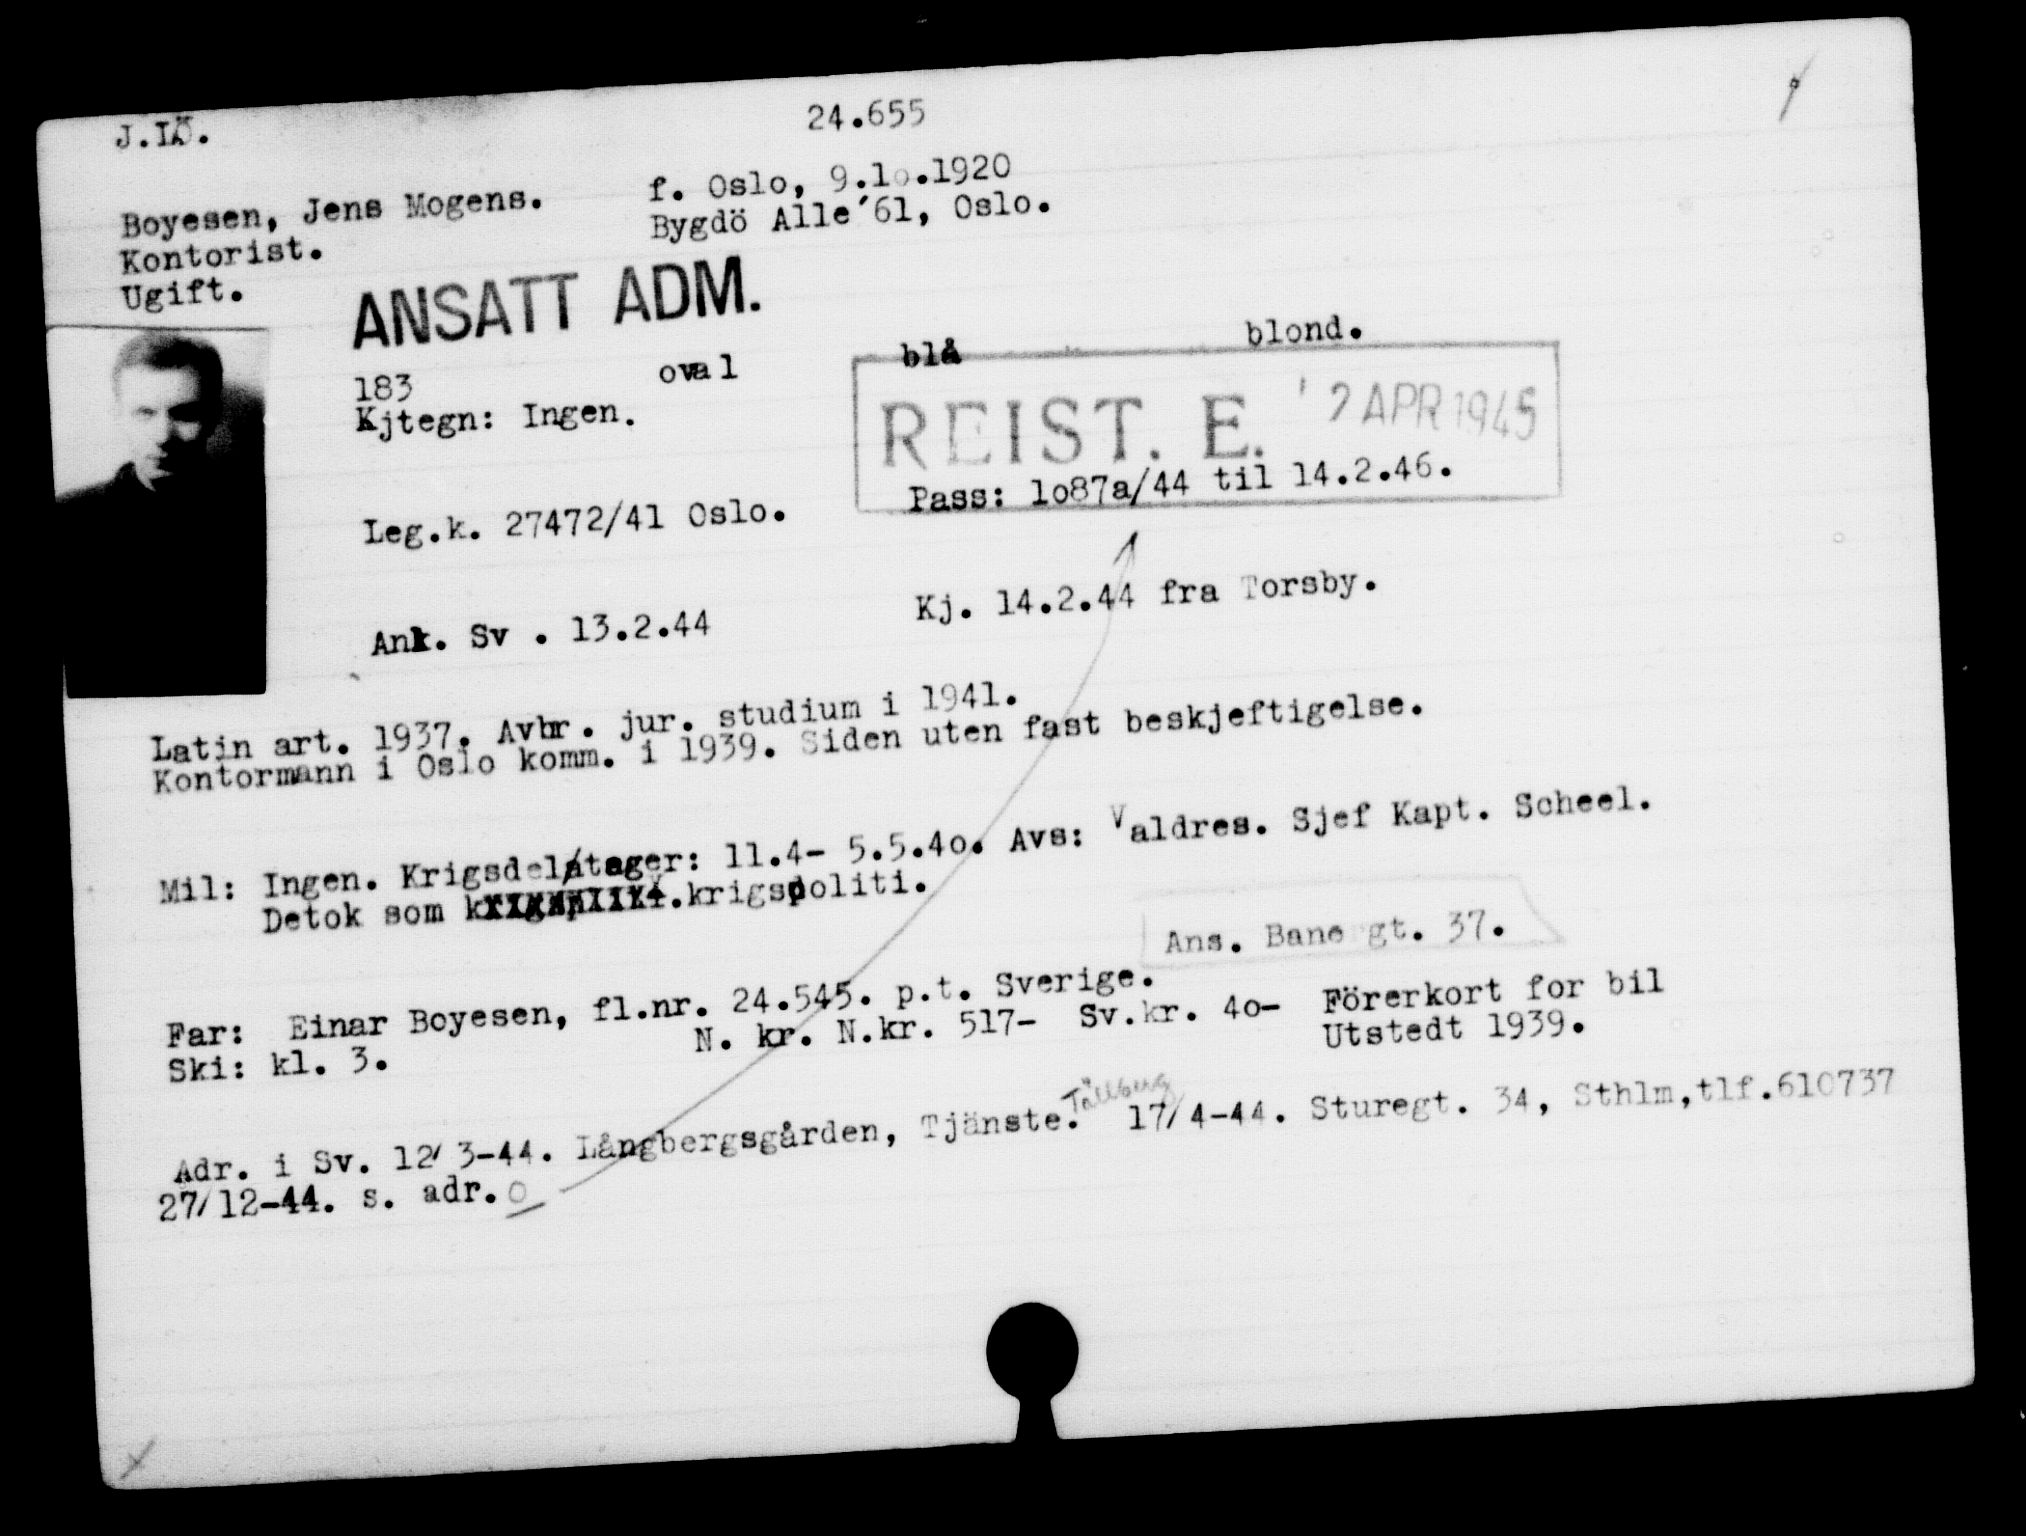 J.LÖ.
24.655
Boyesen, Jens Mogens. f. Oslo, 9.1o.1920
Kontorist. Bygdö Alle´61, Oslo.
Ugift.
ANSATT ADM.
183 oval blå blond.
Kjtegn: Ingen.
REIST. E. APR 1945
Leg.k. 27472/41 Oslo. Pass: 1o87a/44 til 14.2.46.
Ank. Sv . 13.2.44 Kj. 14.2.44 fra Torsby.
Latin art. 1937. Avbr. jur. studium i 1941.
Kontormann i Oslo komm. i 1939. Siden uten fast beskjeftigelse.
Mil: Ingen. Krigsdeltager: 11.4- 5.5.4o. Avs: Valdres. Sjef Kapt. Scheel.
Detok som krigspoliti.
Ans. Banergt. 37.
Far: Einar Boyesen, fl.nr. 24.545. p.t. Sverige.
Ski: kl. 3. N. kr. N.kr. 517- Sv.kr. 4o- Förerkort for bil
Utstedt 1939.
Adr. i Sv. 12/ 3-44. Långbergsgården, Tjänste. Tällberg 17/ 4-44. Sturegt. 34, Sthlm,tlf.610737
27/12-44. s. adr.